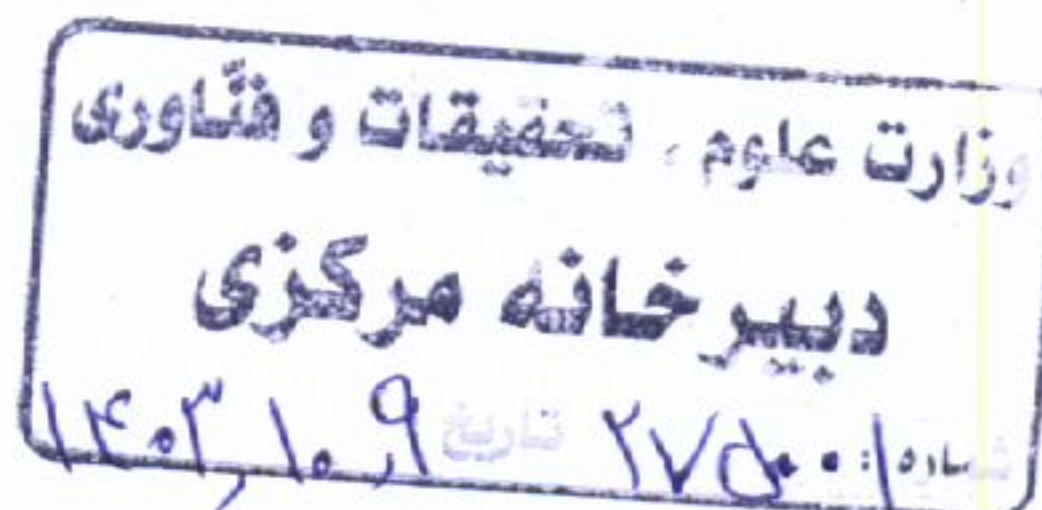 وزارت علوم، تحقیقات و فنّاوری
دبیرخانه مرکزی
شماره: ۲۷۵۰۰۱ تاریخ ۱۴۰۳,۱۰,۹